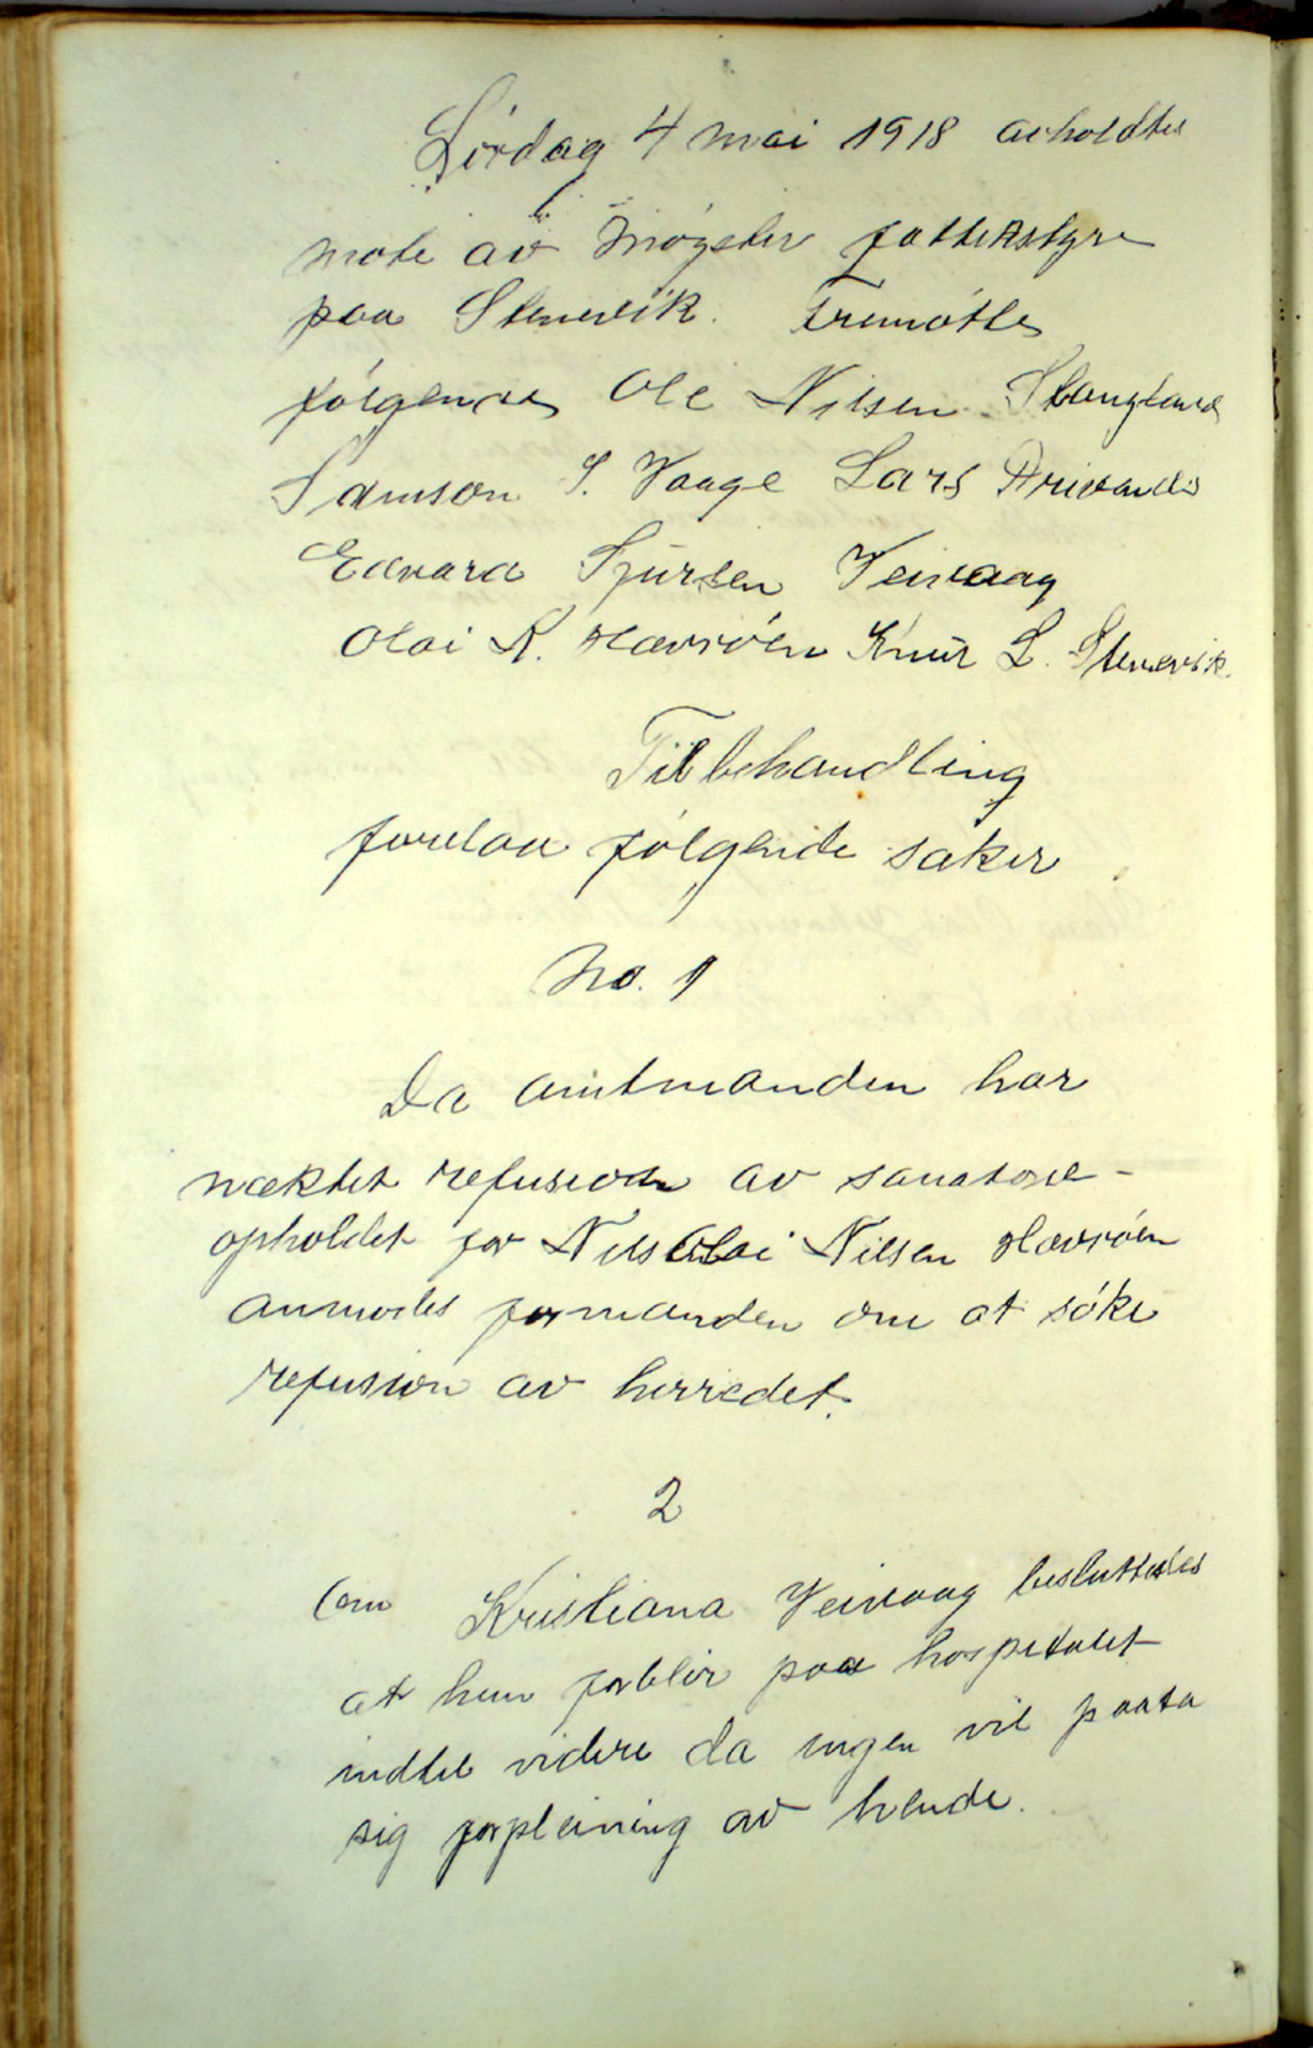 Lördag 4 mai 1918 avholdtes
möte av Møgster fattikstyre
paa Stenevik. Fremötte
følgende Ole Nilsen Stangeland
Samson S. Vaage Lars Drivenes
Edvard Sjursen Veivaag
Olai N. Havröen Knut L. Stenevik.
Til behandling
forelaa følgende saker
No. 1
Da amtmanden har
næktet refusion av sanatorie-
opholdet for Nils Olai Nilsen Havröen
anmodes formanden om at söke
refusion av herredet.
2
Om Kristiana Veivaag besluttedes
at hun forblir paa hospitalet
indtil videre da ingen vil paata
sig forpleining av hende.